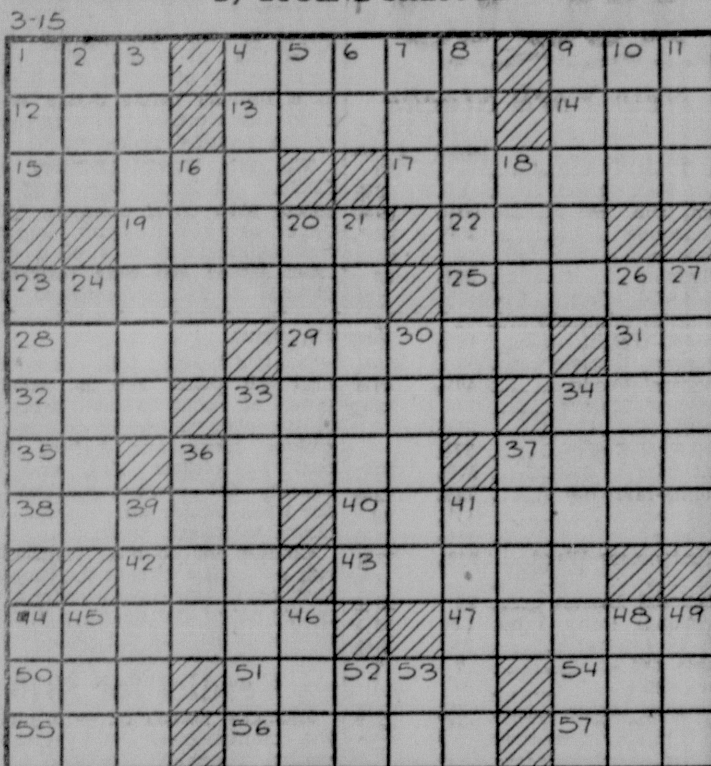 3-15
1 2 3 4 5 6 7 8 9 10 11
12 13 14
15 16 17 18
19 20 21 22
23 24 25 26 27
28 29 30 31
32 33 34
35 36 37
38 39 40 41
42 43
44 45 46 47 48 49
50 51 52 53 54
55 56 57